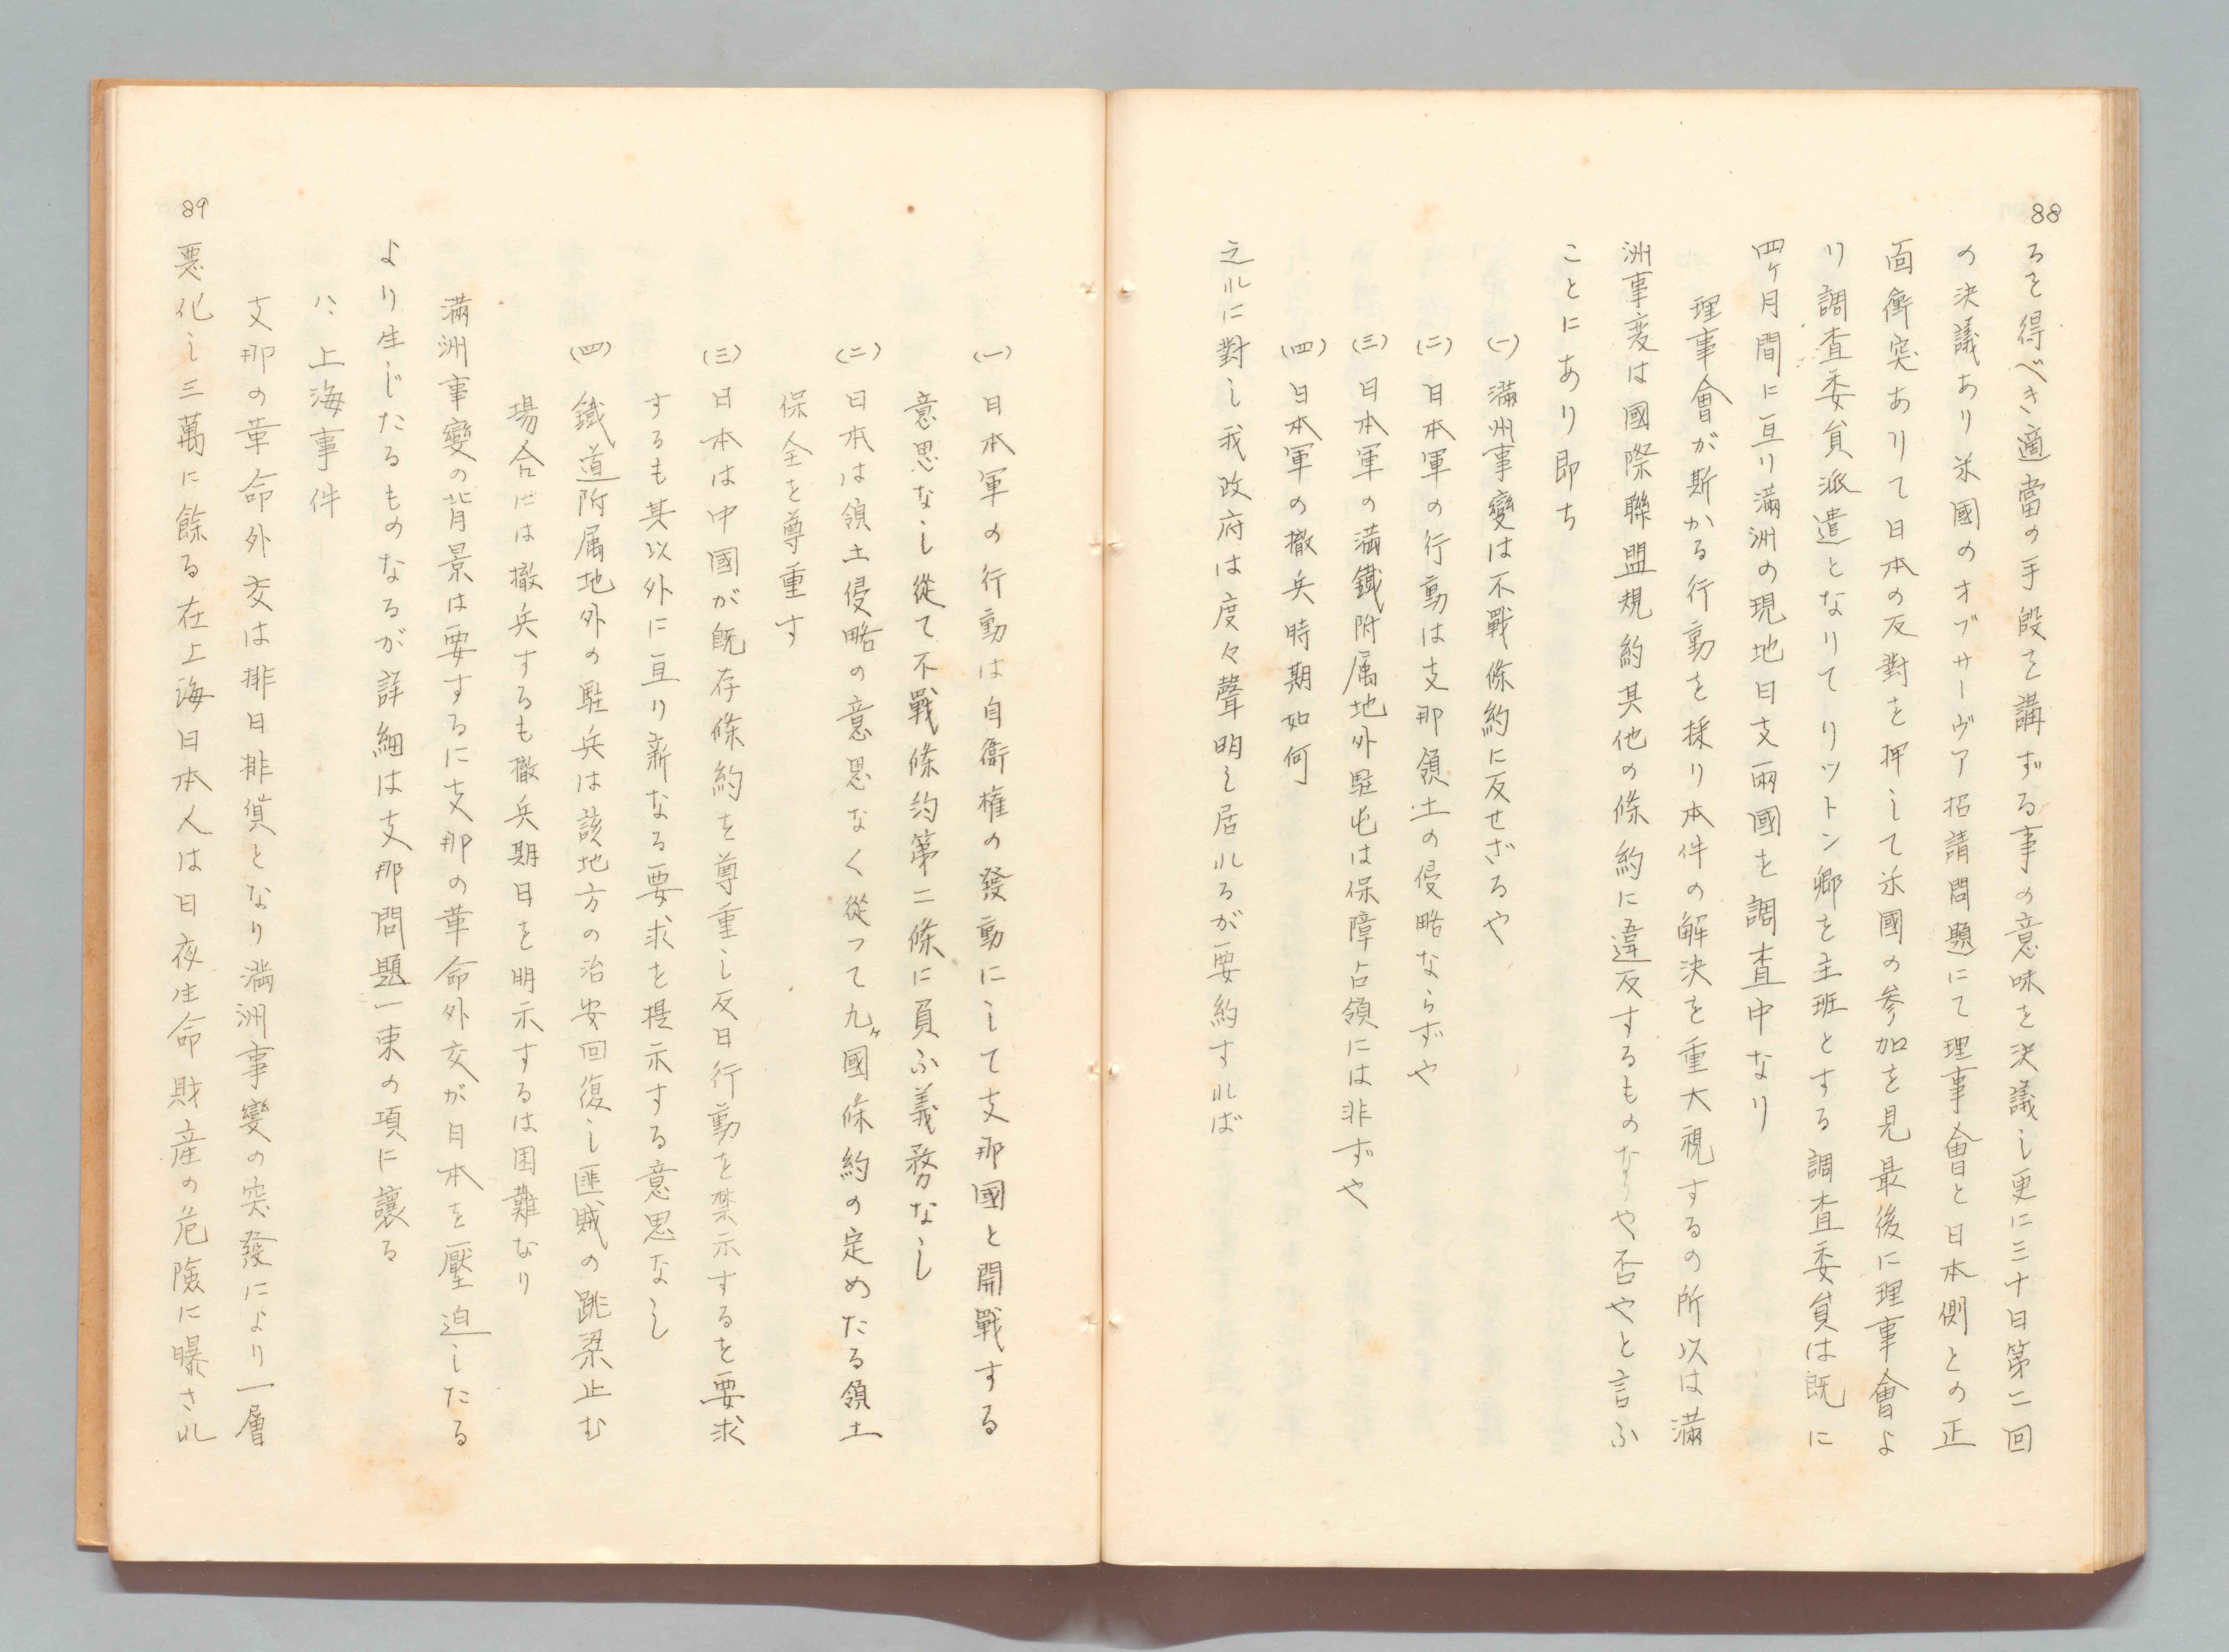 88
るを得べき適當の手段を講ずる事の意味を決議し更に三十日第二回
の決議あり米國のオブサーヴア招請問題にて理事會と日本側との正
面衝突ありて日本の反對を押して米國の参加を見最後に理事會よ
り調査委員派遣となりてリツトン卿を主班とする調査委員は既に
四ケ月間に亘り滿洲の現地日支兩國を調査中なり
理事會が斯かる行動を採り本件の解決を重大視するの所以は滿
洲事変は國際聯盟規約其他の條約に違反するものなりや否やと言ふ
ことにあり即ち
(一) 滿洲事變は不戰條約に反せざるや
(二) 日本軍の行動は支那領土の侵略ならずや
(三) 日本軍の滿鐵附属地外駐屯は保障占領には非ずや
(四) 日本軍の撤兵時期如何
之れに對し我政府は度々聲明し居れるが要約すれば
(一) 日本軍の行動は自衞権の發動にして支那國と開戰する
意思なし從て不戰條約第二條に負ふ義務なし
(二) 日本は領土侵略の意思なく從つて九ケ國條約の定めたる領土
保全を尊重す
(三) 日本は中國が既存條約を尊重し反日行動を禁示するを要求
するも其以外に亘り新なる要求を提示する意思なし
(四) 鐵道附属地外の駐兵は該地方の治安回復し匪賊の跳梁止む
場合には撤兵するも撤兵期日を明示するは困難なり
滿洲事變の背景は要するに支那の革命外交が日本を壓迫したる
より生じたるものなるが詳細は支那問題一束の項に讓る
八、上海事件
支那の革命外交は排日排貨となり滿洲事變の突發により一層
89
悪化し三萬に餘る在上海日本人は日夜生命財産の危險に曝され